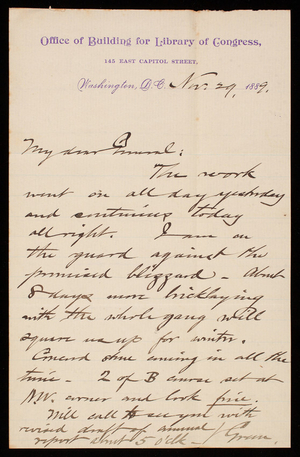 Office of Building for Library of Congress,
145 EAST CAPITOL STREET,
Washington, D.C. Nov. 29, 1889.
My dear General:
The work
went on all day yesterday
and continues today
all right. I am on
the guard against the
promised blizzard — About
8 days more bricklaying
with the whole gang will
square us up for winter.
Concord stone coming in all the
time — 2 of B course set at
N.W. corner and look fine.
Will call to see you with
revised draft of annual
report about 5 o'clk — Green